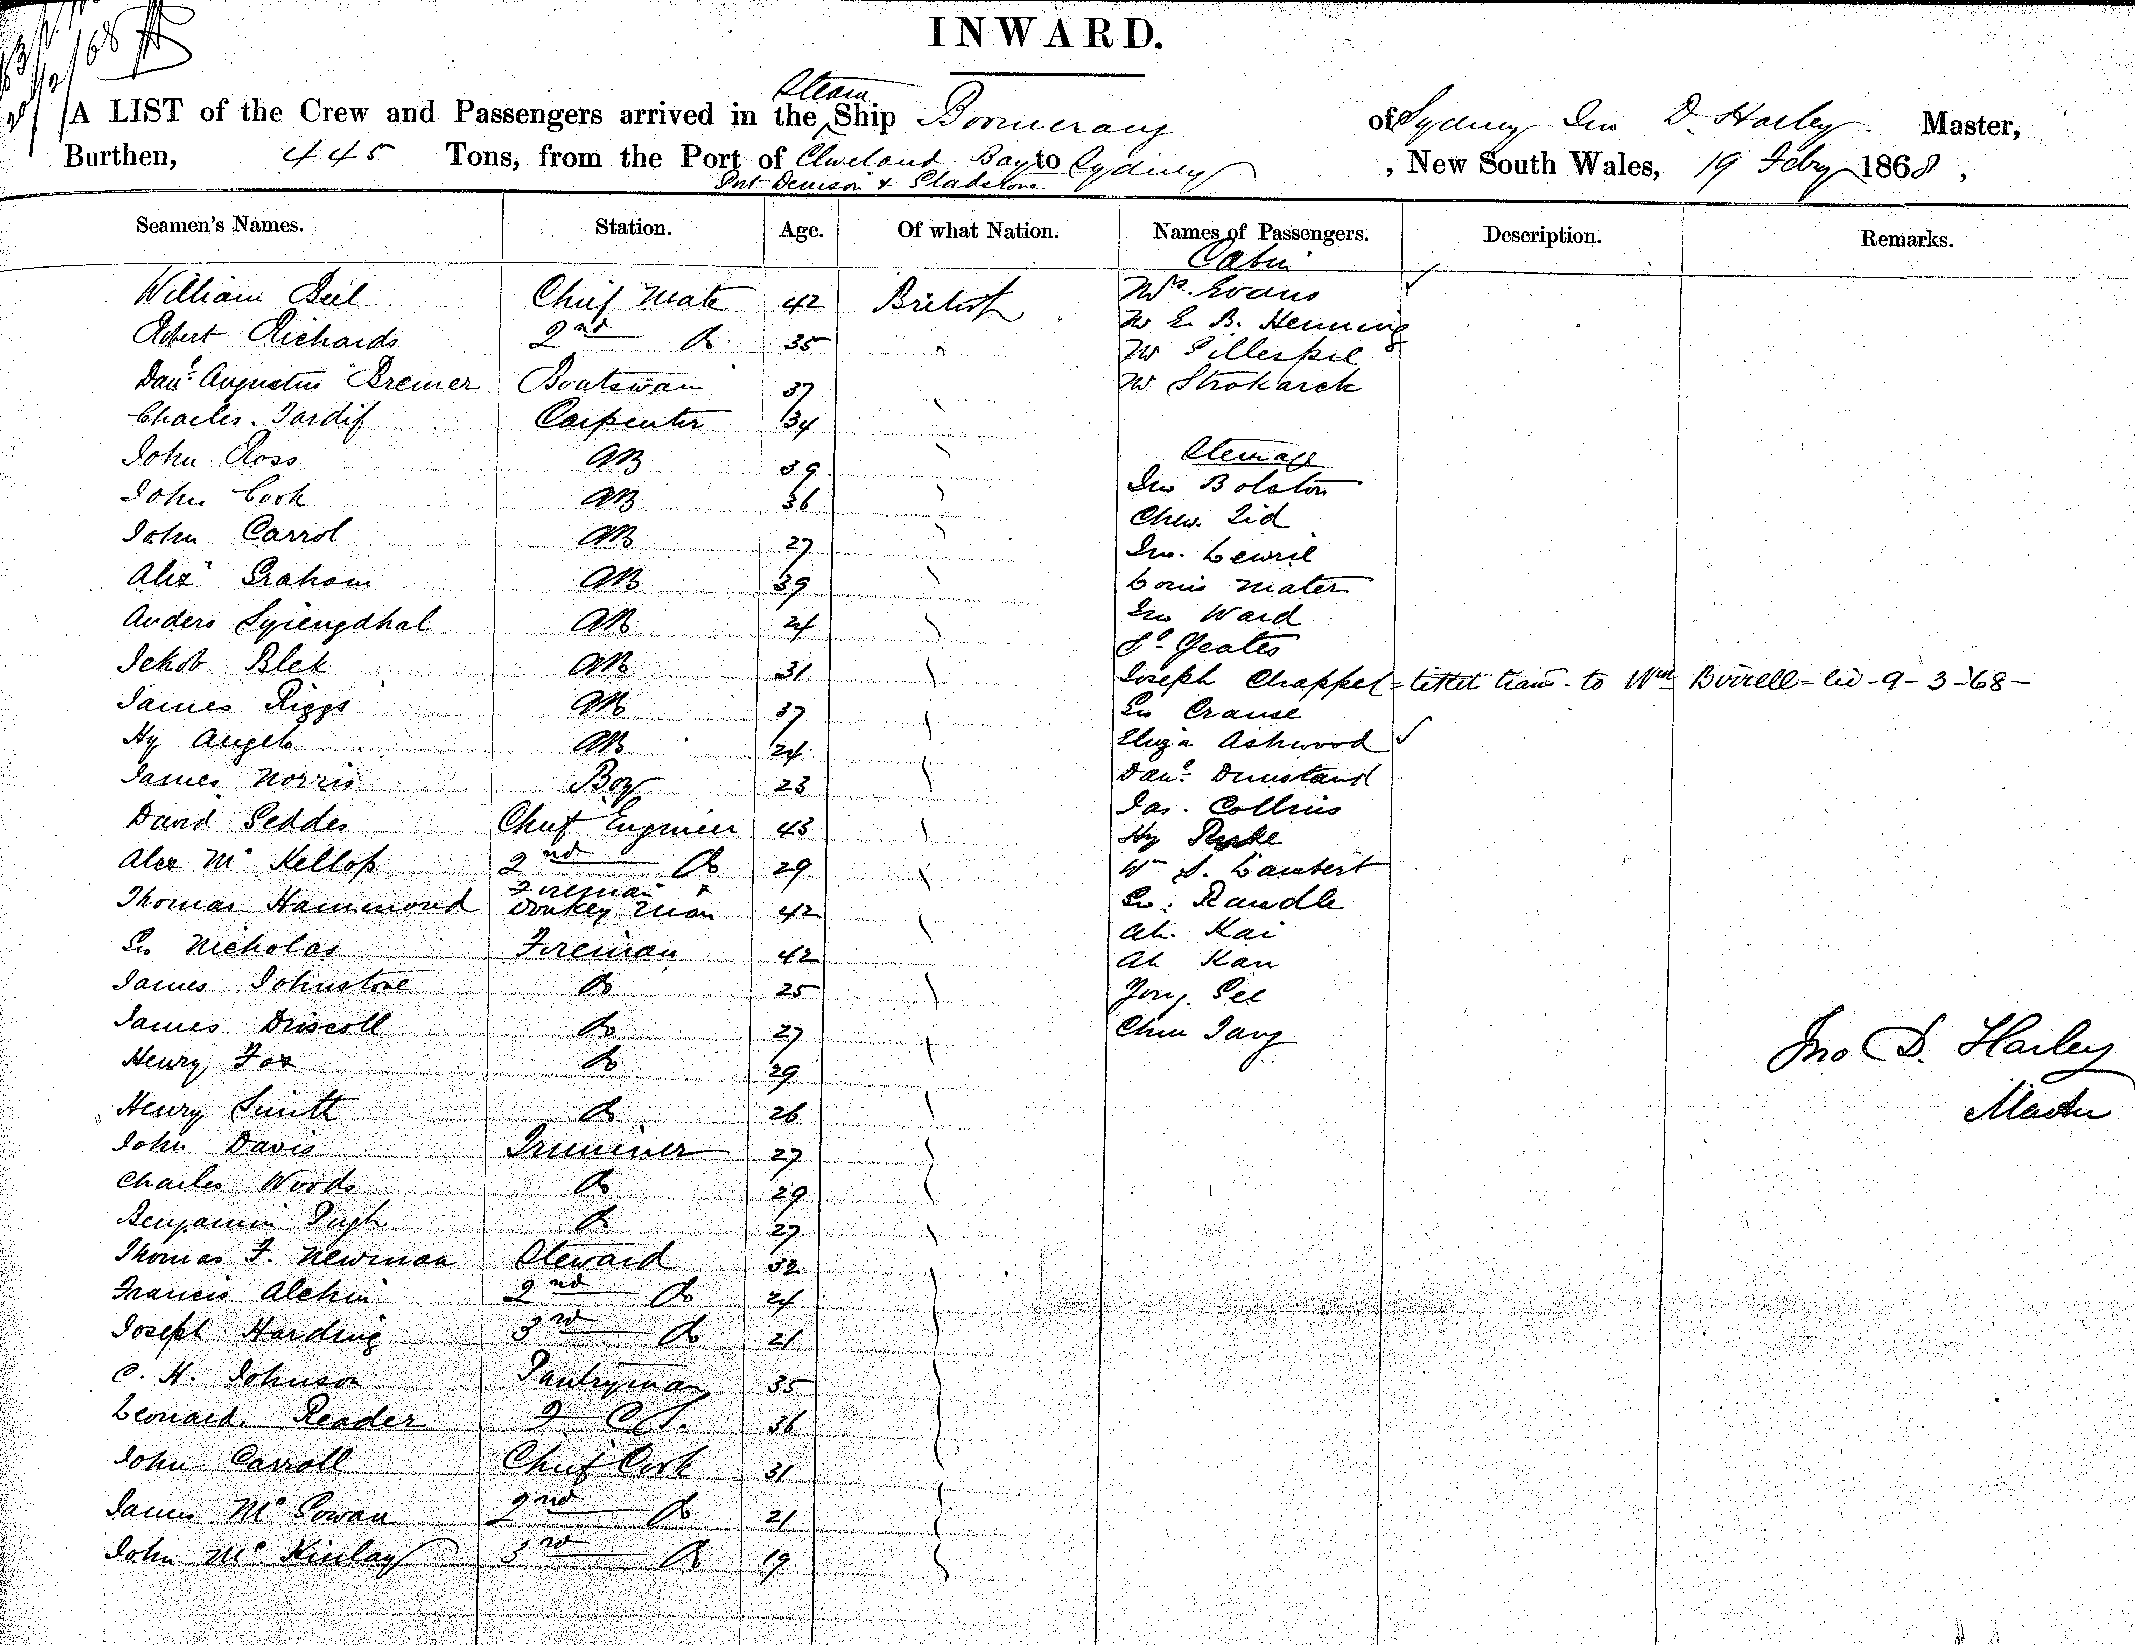 INWARD.
Steam
A LIST of the Crew and Passengers arrived in the Ship Boomerang of Sydney Jno D. Harley Master,
Burthen, 445 Tons, from the Port of Cleveland Bay to Sydney, New South Wales, 19 Feby 1868,
Port Denison & Gladstone
Seamen's Names. Station. Age. Of what Nation. Names of Passengers. Description. Remarks.
Cabin
William Bell Chief Mate 42 British Mrs. Evans
Robert Richards 2nd Do 35 " Mr E. B. Henning
Mr Gillespie
Danl. Augustus Bremer Boatswain 37 Mr Strokarck
Charles Tardif Carpenter 34
John Ross AB 39 Steerage
John Cook AB 36 Jno Bolston
Chew Lid
John Carrol AB 27 Jno.
Alexr Graham AB 39 Louis Mater
Anders AB 24 Jno Ward
Jekob Blek AB 31 Yeates
Joseph Chappel - ticket trans. to Wm Birrell - 9-3-'68-
James Riggs AB 37 Crause
Hy Angelo AB 24 Eliza Ashwood
James Norris Boy 23 Danl. Dunstand
David Geddes Chief Engineer 43 Jas. Collins
Hy
Alex Mc Kellop 2nd Do 29 Wm S. Lambert
Thomas Hammond Fireman & Donkey Man 42 Randle
Ah. Kai
Jno Nicholas Fireman 42 Ah Kan
James Johnstone Do 25 Yong. See
James Driscoll Do 27 Chun Tang
Jno D. Harley
Henry Fox Do 29
Master
Henry Smith Do 26
John Davis Trimmer 27
Charles Woods Do 29
Benjamin Pugh Do 27
Thomas F. Newman Steward 32
Francis Alchin 2nd Do 24
Joseph Harding 3rd Do 21
C. H. Johnson Pantryman 35
Leonard Reader 36
John Carroll Chief Cook 31
James Mc Gowan 2nd Do 21
John Mc Kinlay 3rd Do 19